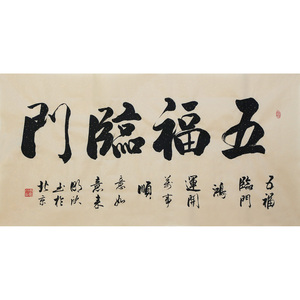 五福臨門
五福
臨門
鴻
運開
萬事
順
意如
意来
书於
北京